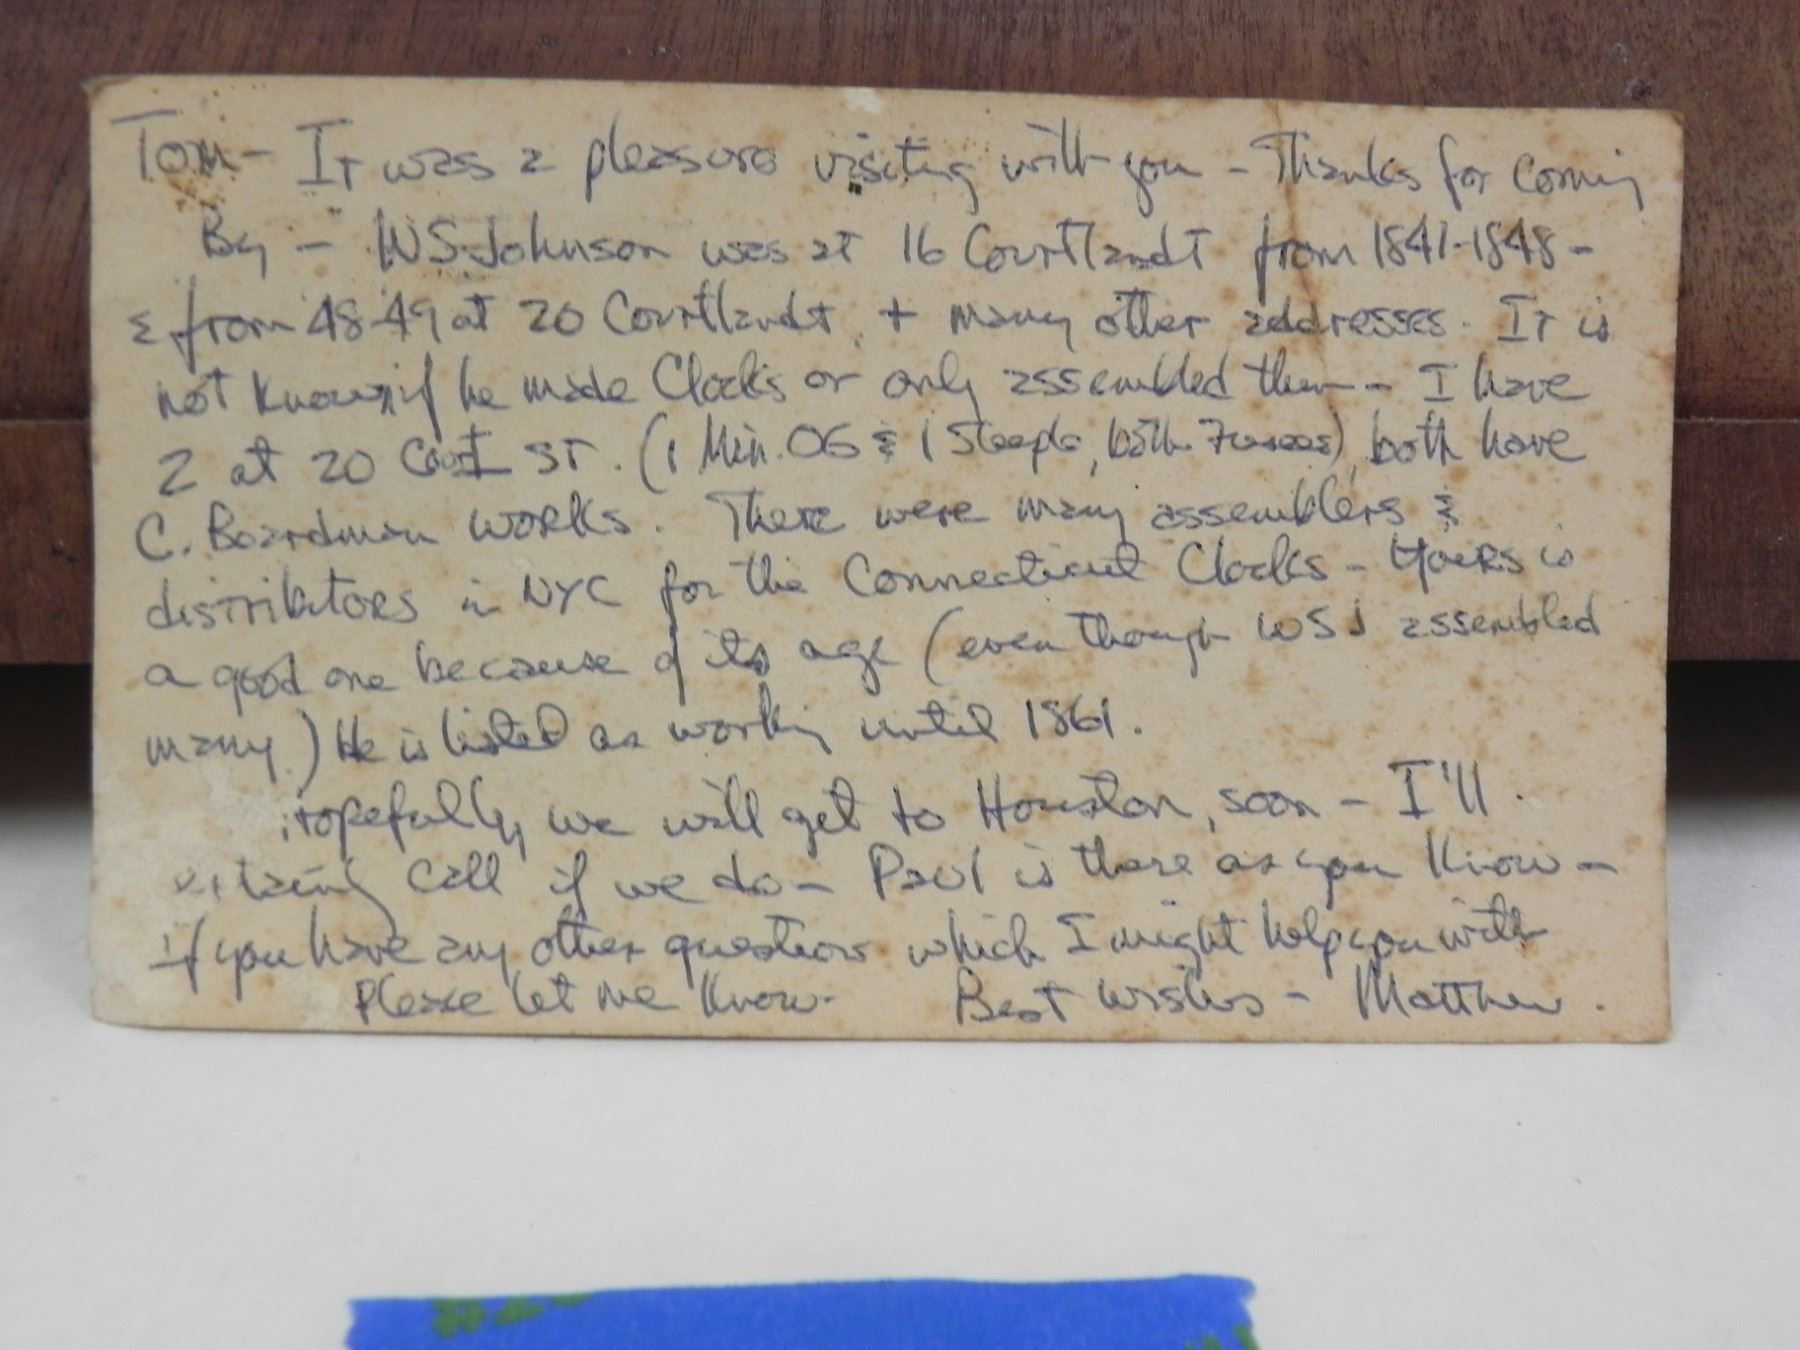 Tom - It was a pleasure visiting with you - Thanks for coming
By - WS Johnson was at 16 Courtlandt from 1841-1848 -
& from 48-49 at 20 Courtlandt, + many other addresses. It is
not known if he made Clocks or only assembled them - I have
2 at 20 Court St. (1 Min. OG & 1 Steeple, both Fusees) both have
C. Boardman works. There were many assemblers &
distributors in NYC for the Connecticut Clocks - Yours is
a good one because of its age (even though WSJ assembled
many.) He is listed as working until 1861.
Hopefully, we will get to Houston, soon - I'll
certainly call if we do - Paul is there as you know -
if you have any other questions which I might help you with
Please let me know - Best wishes - Matthew.